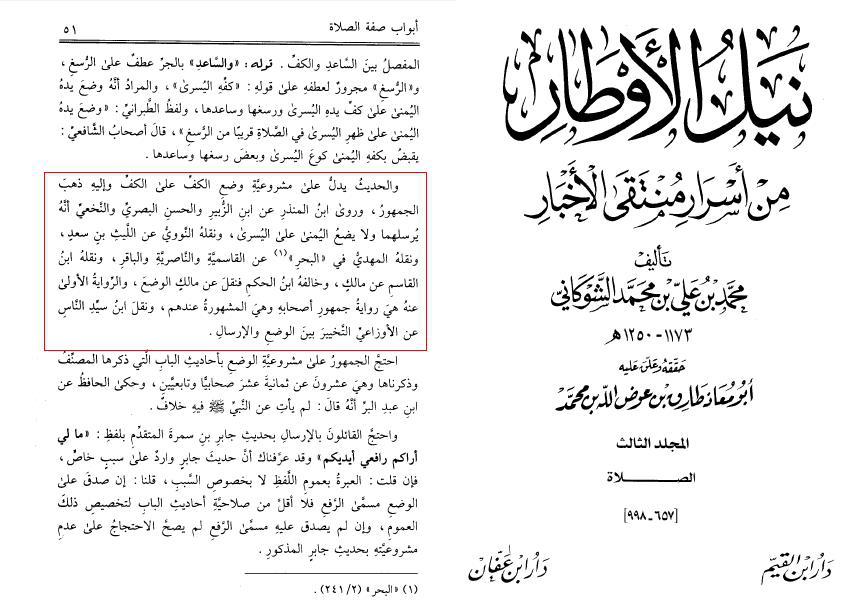 أبواب صفة الصلاة
٥١
المفصلُ بينَ السَّاعدِ والكفِّ . قوله: «والسَّاعدِ» بالجرِّ عطفٌ علىٰ الرُّسغِ،
و«الرُّسغِ» مجرورٌ لعطفهِ علىٰ قولهِ : «كفِّهِ اليُسرىٰ»، والمرادُ أنَّهُ وضعَ يدهُ
اليُمنىٰ علىٰ كفِّ يدهِ اليُسرىٰ ورسغها وساعدها، ولفظُ الطَّبرانيِّ: «وضعَ يدهُ
اليُمنىٰ علىٰ ظهرِ اليُسرىٰ في الصَّلاةِ قريبًا من الرُّسغِ»، قالَ أصحابُ الشَّافعيِّ:
يقبضُ بكفهِ اليُمنىٰ كوعَ اليُسرىٰ وبعضَ رسغها وساعدها .
والحديثُ يدلُّ علىٰ مشروعيَّةِ وضعِ الكفِّ علىٰ الكفِّ وإليهِ ذهبَ
الجمهورُ، وروىٰ ابنُ المنذرِ عن ابنِ الزُّبيرِ والحسنِ البصريِّ والنَّخعيِّ أنَّهُ
يُرسلهما ولا يضعُ اليُمنىٰ علىٰ اليُسرىٰ، ونقلهُ النَّوويُّ عن اللَّيثِ بنِ سعدٍ،
ونقلهُ المهديُّ في «البحرِ»(١) عن القاسميَّةِ والنَّاصريَّةِ والباقرِ، ونقلهُ ابنُ
القاسمِ عن مالكٍ، وخالفهُ ابنُ الحكمِ فنقلَ عن مالكٍ الوضعَ، والرِّوايةُ الأولىٰ
عنهُ هيَ روايةُ جمهورِ أصحابهِ وهيَ المشهورةُ عندهم، ونقلَ ابنُ سيِّدِ النَّاسِ
عن الأوزاعيِّ التَّخييرَ بينَ الوضعِ والإرسالِ .
احتجَّ الجمهورُ علىٰ مشروعيَّةِ الوضعِ بأحاديثِ البابِ الَّتي ذكرها المصنِّفُ
وذكرناها وهيَ عشرونَ عن ثمانيةَ عشرَ صحابيًّا وتابعيَّينِ، وحكىٰ الحافظُ عن
ابنِ عبدِ البرِّ أنَّهُ قالَ: لم يأتِ عن النَّبيِّ ﷺ فيهِ خلافٌ .
واحتجَّ القائلونَ بالإرسالِ بحديثِ جابرِ بنِ سمرةَ المتقدِّمِ بلفظِ: «ما لي
أراكم رافعي أيديكم» وقد عرَّفناكَ أنَّ حديثَ جابرٍ واردٌ علىٰ سببٍ خاصٍّ،
فإن قلتَ: العبرةُ بعمومِ اللَّفظِ لا بخصوصِ السَّببِ، قلنا: إن صدقَ علىٰ
الوضعِ مسمَّىٰ الرَّفعِ فلا أقلَّ من صلاحيَّةِ أحاديثِ البابِ لتخصيصِ ذلكَ
العمومِ، وإن لم يصدق عليهِ مسمَّىٰ الرَّفعِ لم يصحَّ الاحتجاجُ علىٰ عدمِ
مشروعيَّتهِ بحديثِ جابرٍ المذكورِ .
(١) «البحر» (٢٤١/٢) .
نَيْلُ الأَوْطَارِ
مِنْ أَسْرَارِ مُنْتَقَى الأَخْبَارِ
تأليف
محمّد بن عليّ بن محمّد الشّوكانيّ
١١٧٣ - ١٢٥٠ هـ
حققه وعلق عليه
أبو معاذ طارق بن عوض الله بن محمد
المجلد الثالث
الصـــلاة
[٦٥٧ - ٩٩٨]
دار ابن القيم
دار ابن عفان